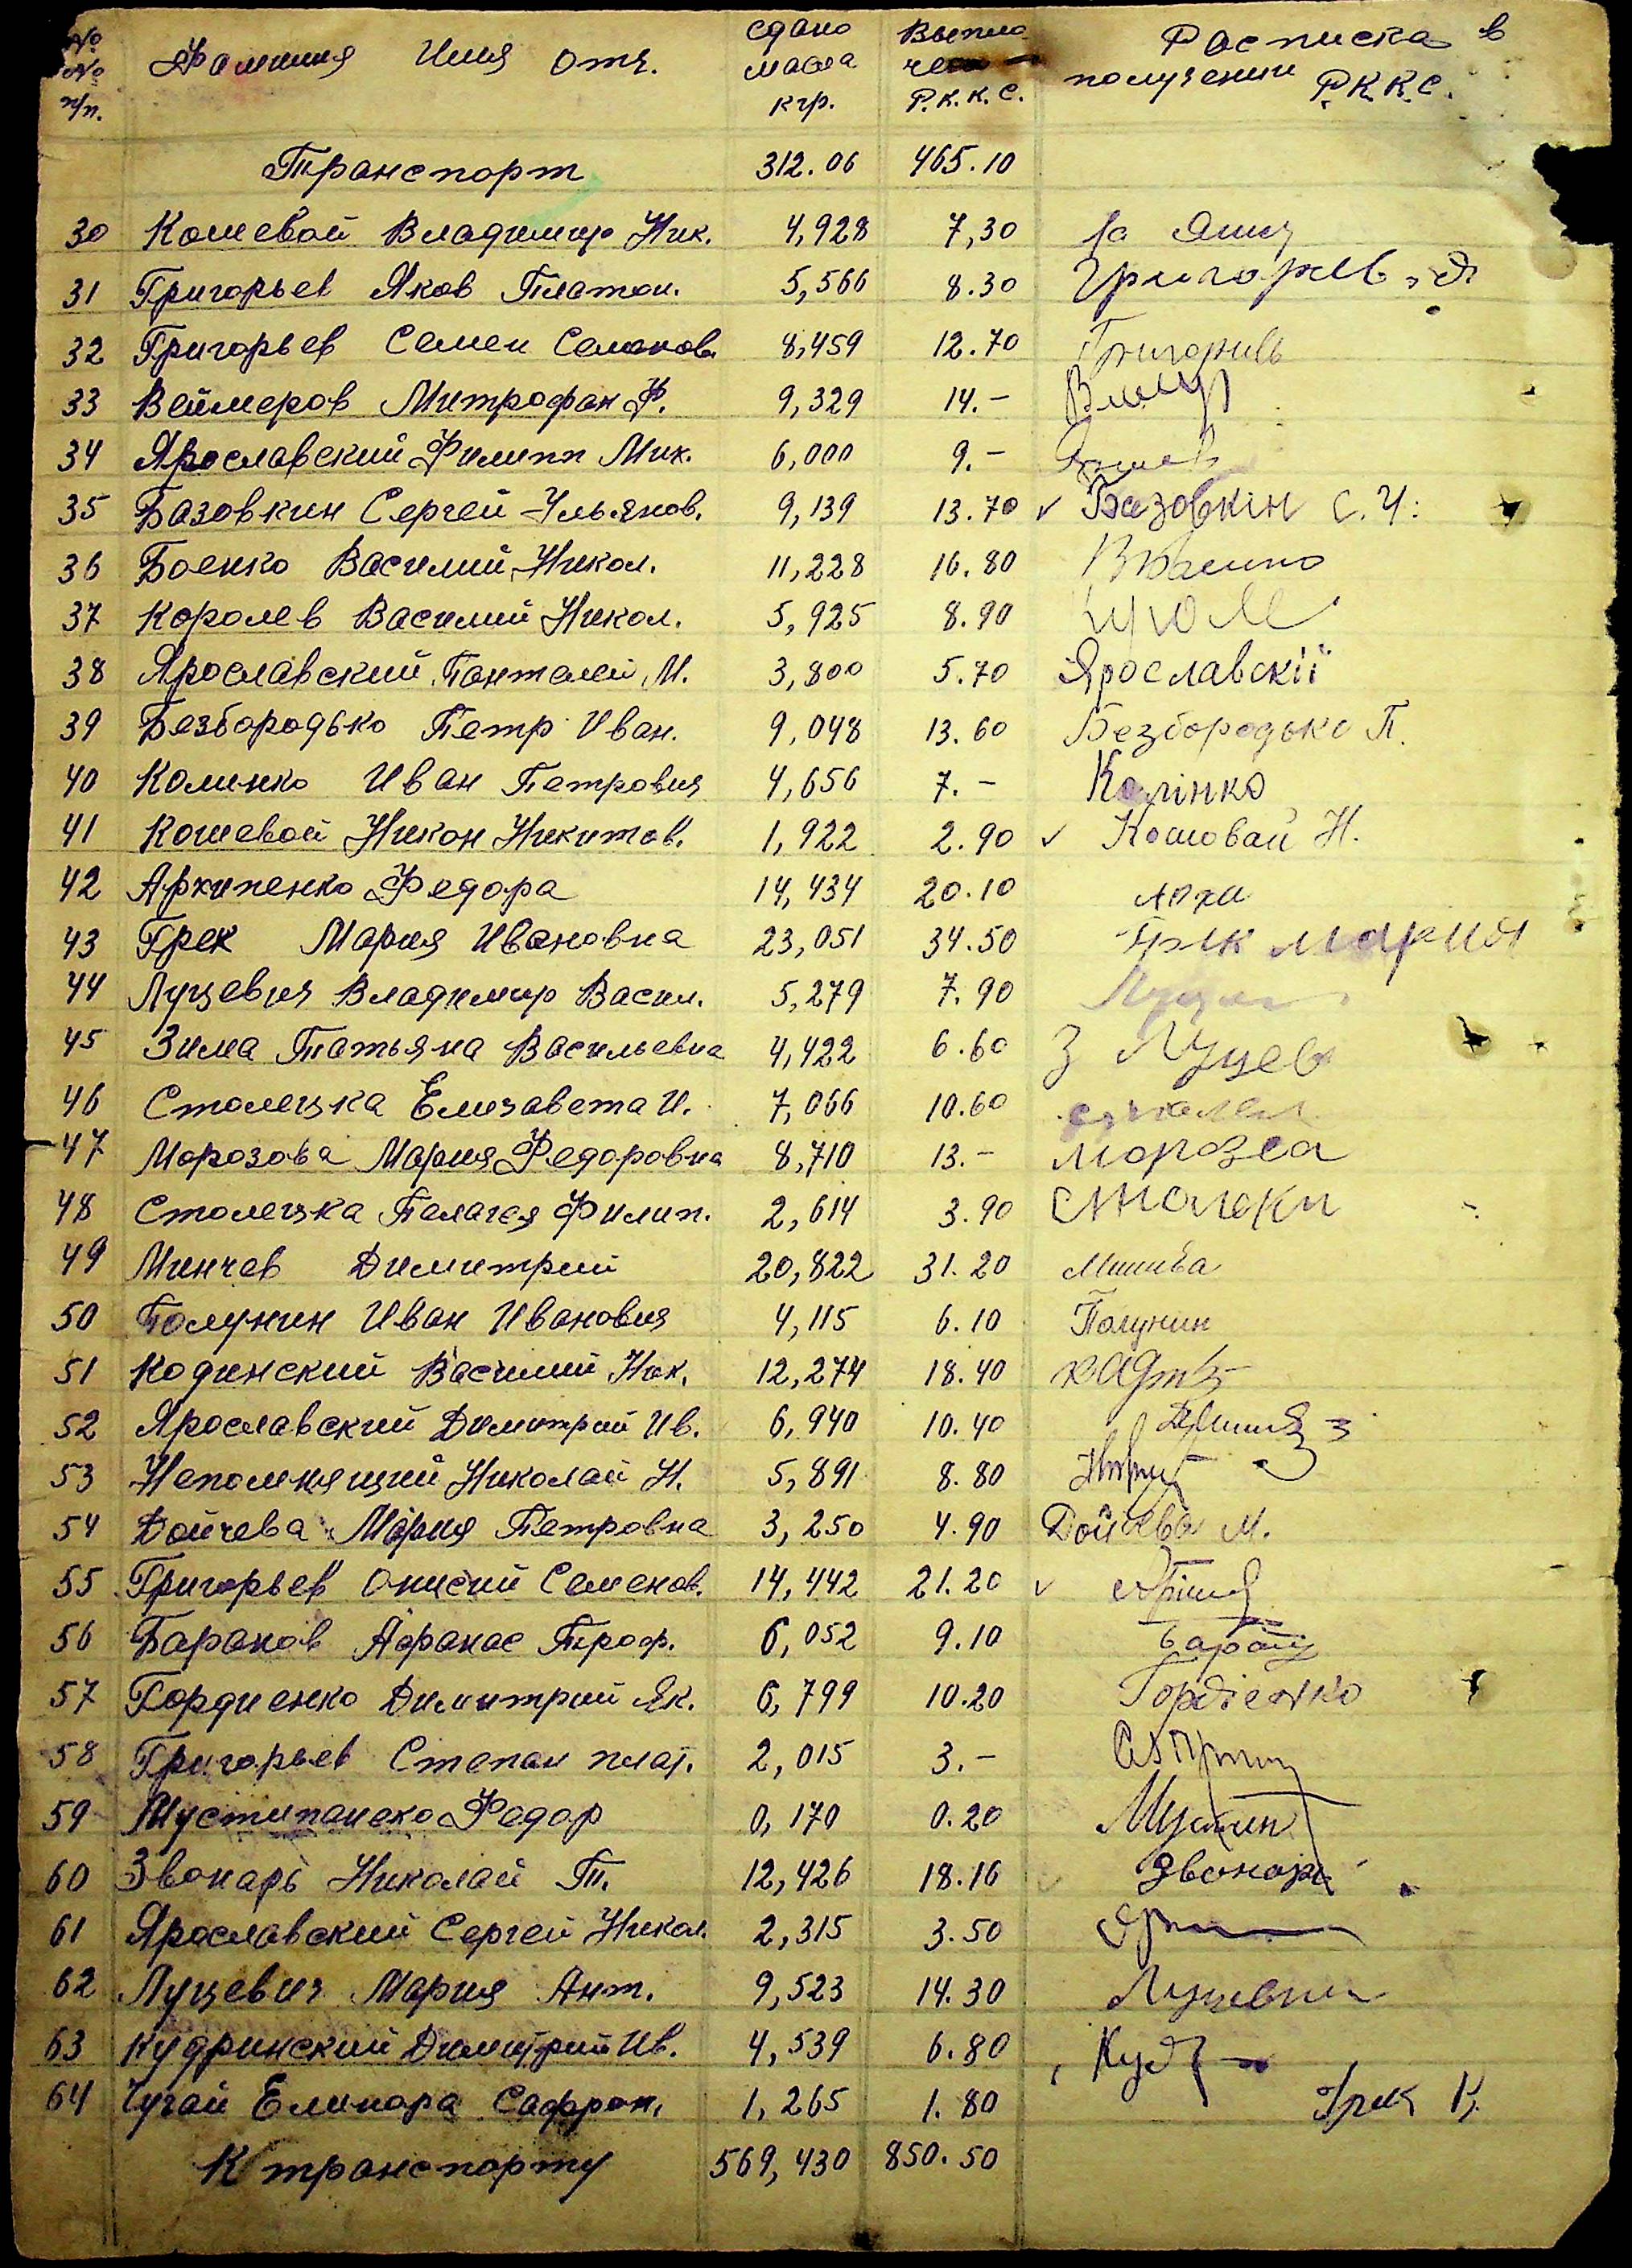 № № п/п. Фамилия Имя Отч. сдано масла кгр. Выпла чено Р.к.к.с. Расписка в получении Р.К.К.С.
Транспорт 312.06 465.10
30 Кошевой Владимир Ник. 4,928 7,30 За
31 Григорьев Яков Платон. 5,566 8.30 Григорьев Я
32 Григорьев Семен Семенов. 8,459 12.70
33 Веймеров Митрофан Ф. 9,329 14.-
34 Ярославский Филипп Мих. 6,000 9.-
35 Базовкин Сергей Ульянов. 9,139 13.70 ✓ Базовкін С.У.
36 Боенко Василий Никол. 11,228 16.80
37 Королев Василий Никол. 5,925 8.90
38 Ярославский Панталей М. 3,800 5.70 Ярославскії
39 Безбородько Петр Иван. 9,048 13.60 Безбородько П.
40 Калинко Иван Петрович 4,656 7.- Калінко
41 Кошевой Никон Никитов. 1,922 2.90 ✓ Кошовай Н.
42 Архипенко Федора 14,434 20.10 Архи
43 Грек Мария Ивановна 23,051 34.50 Грек Мария
44 Луцевич Владимир Васил. 5,279 7.90
45 Зима Татьяна Васильевна 4,422 6.60 З Луцев
46 Столецка Елизавета И. 7,066 10.60
47 Морозова Мария Федоровна 8,710 13.- Морозва
48 Столецка Пелагея Филип. 2,614 3.90
49 Минчев Димитрий 20,822 31.20
50 Полунин Иван Иванович 4,115 6.10 Полунин
51 Кодинский Василий Ник. 12,274 18.40
52 Ярославский Димитрий Ив. 6,940 10.40
53 Непомнящий Николай Н. 5,891 8.80
54 Дойчева Мария Петровна 3,250 4.90 Дойчева М.
55 Григорьев Онисий Семенов. 14,442 21.20 ✓
56 Баранов Афанас Троф. 6,052 9.10
57 Гордиенко Димитрий Як. 6,799 10.20 Гордіенко
58 Григорьев Степан плат. 2,015 3.-
59 Мустипаненко Федор 0,170 0.20
60 Звонарь Николай П. 12,426 18.16 Звонарь
61 Ярославский Сергей Никол. 2,315 3.50
62 Луцевич Мария Ант. 9,523 14.30 Луцевич
63 Кудринский Димитрий Ив. 4,539 6.80 Кудр
64 Чугай Елинора Сафрон. 1,265 1.80 Грек К.
К транспорту 569,430 850.50